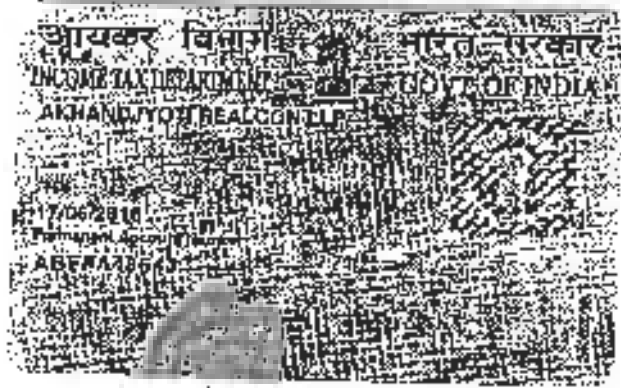 आयकर विभाग भारत सरकार
INCOME TAX DEPARTMENT GOVT. OF INDIA
AKHANDJYOTI REALCON LLP
17/06/2016
Permanent Account Number